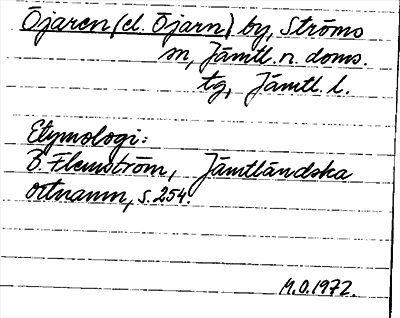 Öjaren (el. Öjarn) by, Ströms
sn, Jämtl. n. doms.
tg, Jämtl. l.
Etymologi:
B. Flemström, Jämtländska
ortnamn, s. 254.
M.O. 1972.